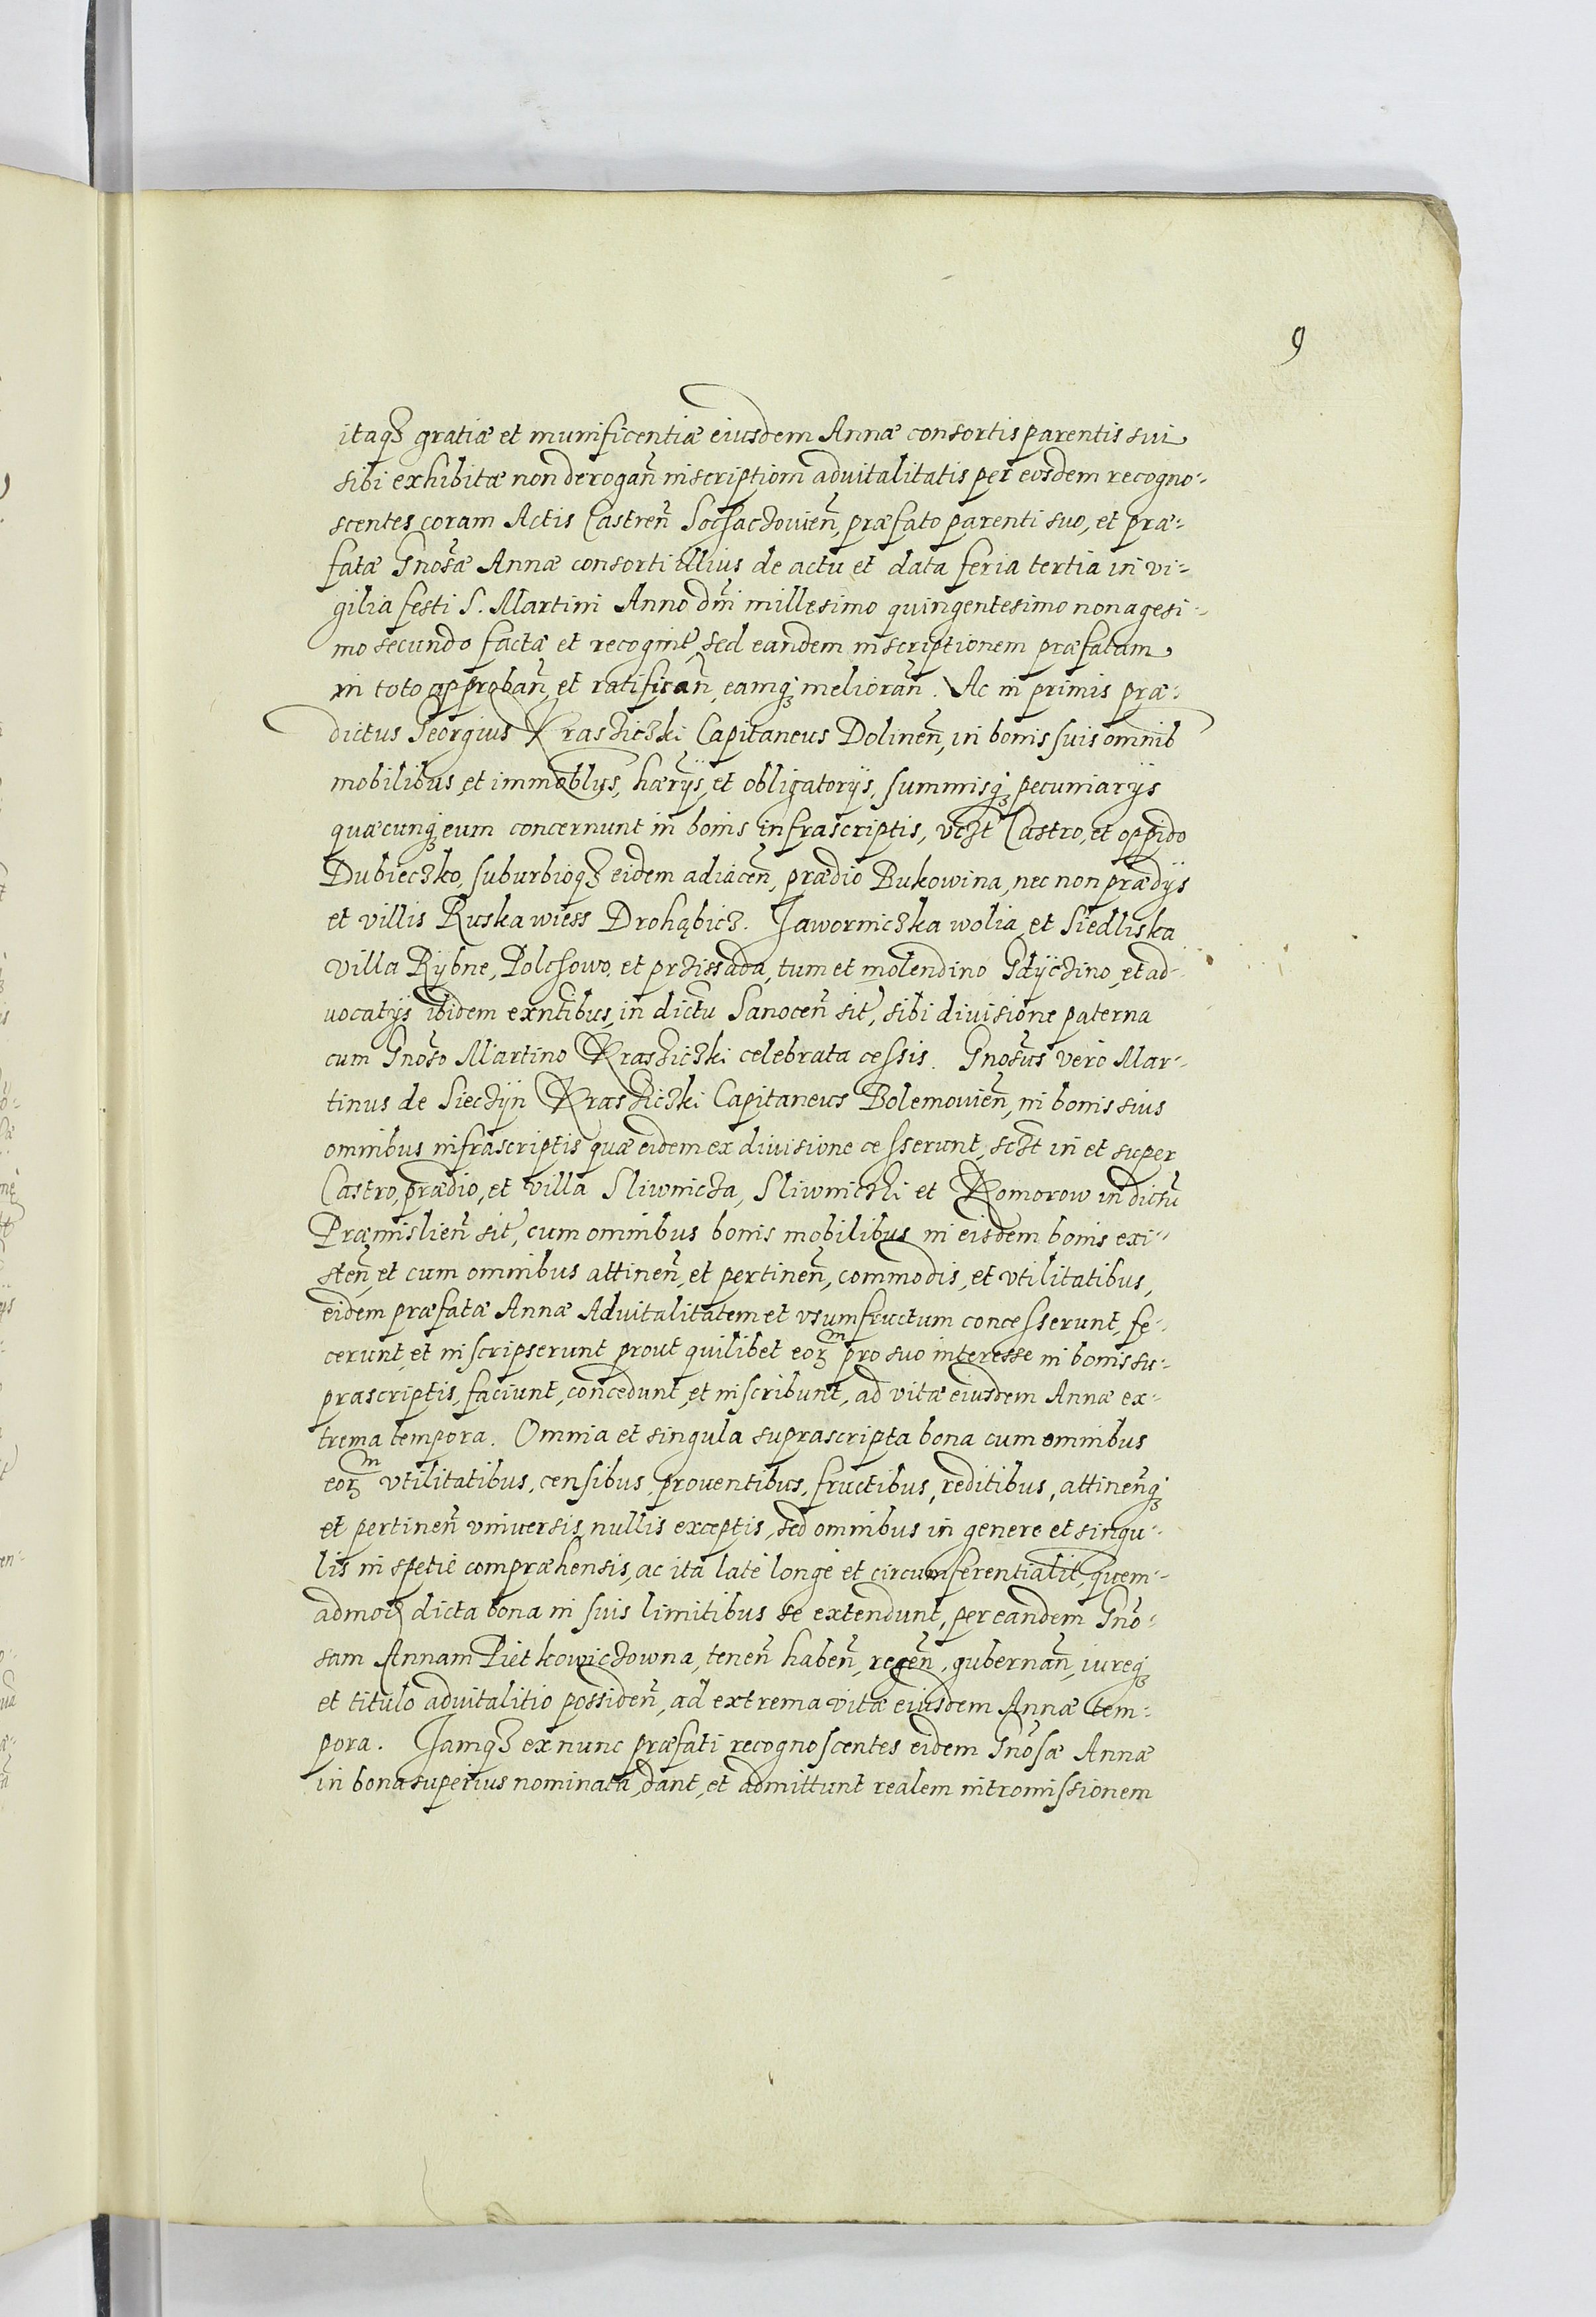 9
itaqꝫ gratiæ et munificentiæ eiusdem Annæ consortis parentis sui
sibi exhibitæ non derogan̄ inscriptioni advitalitatis per eosdem recogno-
scentes coram Actis Castren̄ Sochaczovien̄, præfato parenti suo, et præ-
fatæ Gnosæ Annæ consorti illius de actu et data feria tertia in vi-
gilia festi S. Martini Anno dni millesimo quingentesimo nonagesi-
mo secundo factæ et recognit, sed eandem inscriptionem præfatam
in toto approban̄, et ratifican̄, eamqꝫ melioran̄. Ac in primis præ-
dictus Georgius Krasziczki Capitaneus Dolinen̄, in bonis suis omnib
mobilibus, et immoblys, hærÿs, et obligatorÿs, summisqꝫ pecuniarÿs
quæcunqꝫ eum concernunt in bonis infrascriptis, vczt Castro, et oppido
Dubieczko, suburbioqꝫ eidem adiacen̄, prædio Bukowina, nec non prædÿs
et villis Ruska wiess Drohąbicz. Jaworniczka wolia, et Siedliska
villa Rÿbne, Polchowo, et przissada, tum et molendino Gdÿczino, et ad-
vocatÿs ibidem exntibus, in dictu Sanocen̄ sit, sibi divisione paterna
cum Gnoso Martino Krasziczki celebrata cessis. Gnosus vero Mar-
tinus de Sieczÿn Krasziczki Capitaneus Bolemovien̄, in bonis suis
omnibus infrascriptis quæ eidem ex divisione cesserunt, sczt in et super
Castro, prædio, et villa Sliwnicza, Sliwniczki et Komorow in dictu
Præmislien̄ sit, cum omnibus bonis mobilibus in eisdem bonis exi-
sten̄, et cum omnibus attinen̄, et pertinen̄, commodis, et vtilitatibus,
eidem præfatæ Annæ Advitalitatem et vsumfructum concesserunt, fe-
cerunt, et inscripserunt prout quilibet eoꝝm pro suo interesse in bonis su-
prascriptis, faciunt, concedunt, et inscribunt, ad vitæ eiusdem Annæ ex-
trema tempora. Omnia et singula suprascripta bona cum omnibus
eoꝝm vtilitatibus, censibus, proventibus, fructibus, reditibus, attinen̄qꝫ
et pertinen̄ vniversis, nullis exceptis, sed omnibus in genere et singu-
lis in spetie compræhensis, ac ita late longe et circumferentialit, quem-
admoꝝ dicta bona in suis limitibus se extendunt, per eandem Gno-
sam Annam Pietkowiczowna, tenen̄ haben̄, regen̄, gubernan̄, iureqꝫ
et titulo advitalitio possiden̄, ad extrema vitæ eiusdem Annæ tem-
pora. Jamqꝫ ex nunc præfati recognoscentes eidem Gnosæ Annæ
in bona superius nominata, dant, et admittunt realem intromissionem